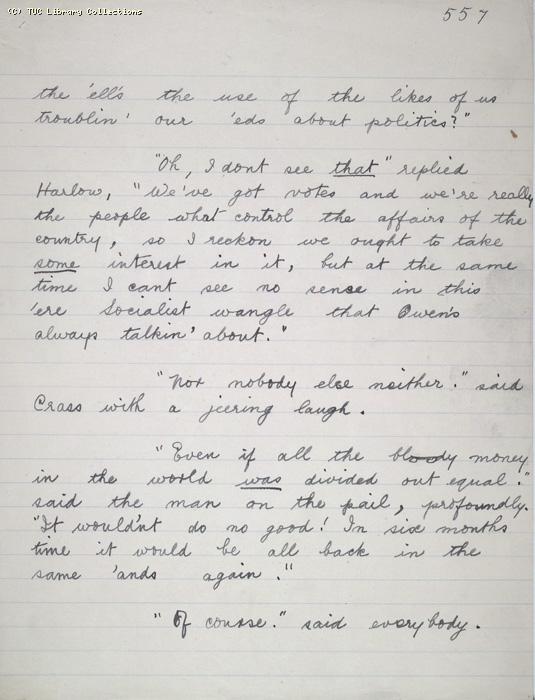 (C) TUC Library Collections
557
the 'ell's the use of the likes of us
troublin' our 'eds about politics?"
"Oh, I dont see that" replied
Harlow, "We've got votes and we're really
the people what control the affairs of the
country, so I reckon we ought to take
some interest in it, but at the same
time I cant see no sense in this
'ere Socialist wangle that Owen's
always talkin' about."
"Nor nobody else neither." said
Crass with a jeering laugh.
"Even if all the bloody money
in the world was divided out equal."
said the man on the pail, profoundly.
"It would'nt do no good! In six months
time it would be all back in the
same 'ands again."
"Of course." said everybody.